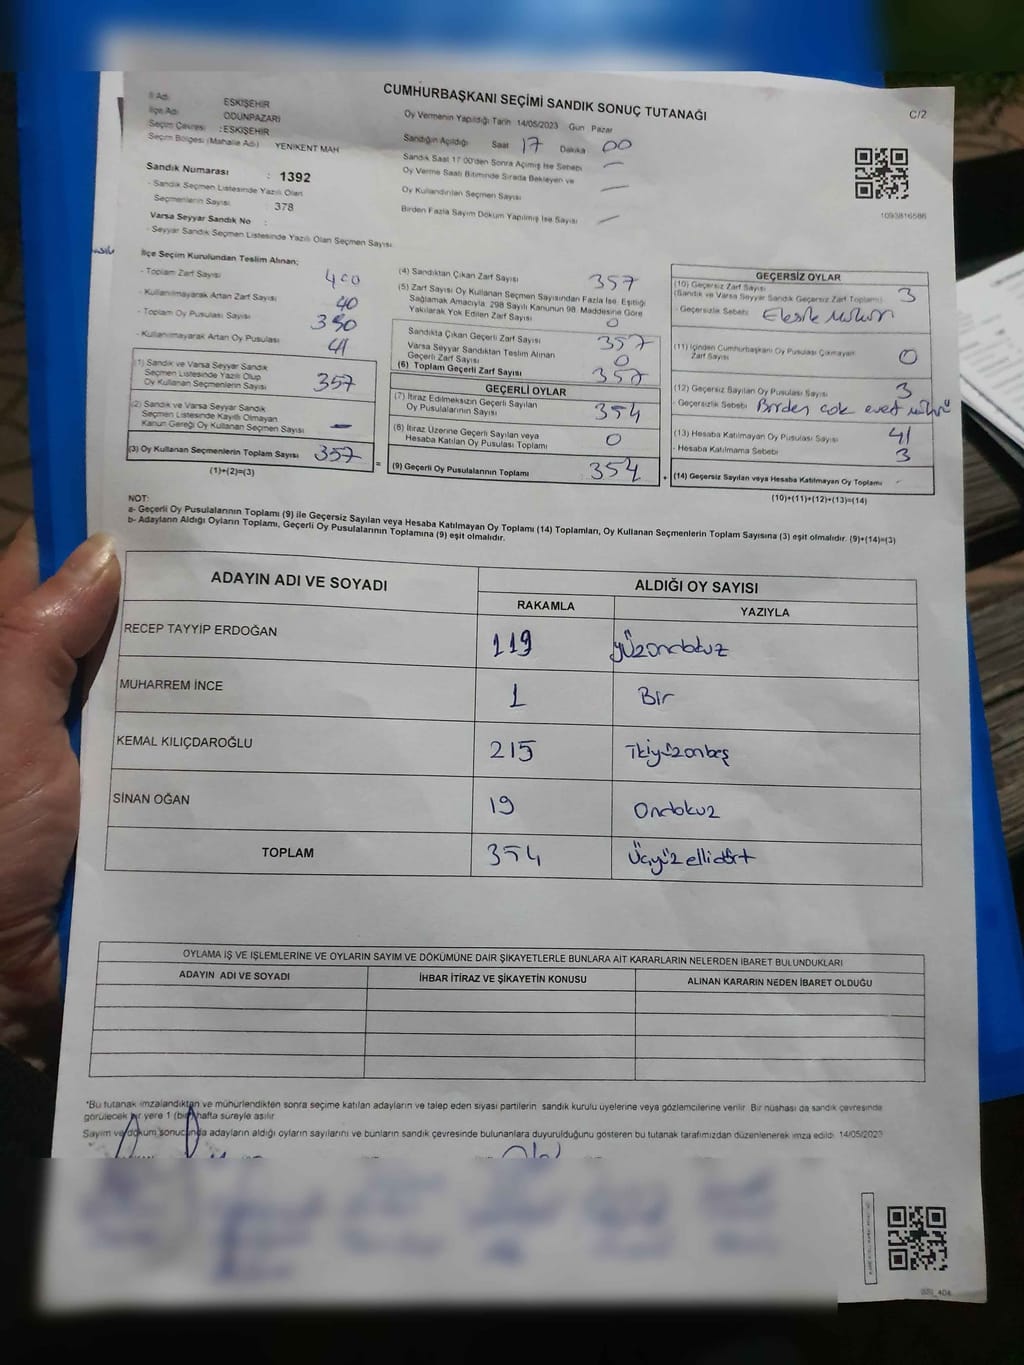 CUMHURBAŞKANI SEÇİMİ SANDIK SONUÇ TUTANAĞI
C/2
İl Adı ESKİŞEHİR
İlçe Adı ODUNPAZARI
Seçim Çevresi : ESKİŞEHİR
Seçim Bölgesi (Mahalle Adı) YENİKENT MAH
Sandık Numarası : 1392
- Sandık Seçmen Listesinde Yazılı Olan
Seçmenlerin Sayısı : 378
Varsa Seyyar Sandık No :
- Seyyar Sandık Seçmen Listesinde Yazılı Olan Seçmen Sayısı
Oy Vermenin Yapıldığı Tarih 14/05/2023 Gün Pazar
Sandığın Açıldığı Saat 17 Dakika 00
Sandık Saat 17:00'den Sonra Açımış İse Sebebi —
Oy Verme Saati Bitiminde Sırada Bekleyen ve
Oy Kullandırılan Seçmen Sayısı —
Birden Fazla Sayım Döküm Yapılmış İse Sayısı —
1093816586
İlçe Seçim Kurulundan Teslim Alınan;
- Toplam Zarf Sayısı 400
- Kullanılmayarak Artan Zarf Sayısı 40
- Toplam Oy Pusulası Sayısı
- Kullanılmayarak Artan Oy Pusulası 41
(1) Sandık ve Varsa Seyyar Sandık
Seçmen Listesinde Yazılı Olup
Oy Kullanan Seçmenlerin Sayısı 357
(2) Sandık ve Varsa Seyyar Sandık
Seçmen Listesinde Kayıtlı Olmayan
Kanun Gereği Oy Kullanan Seçmen Sayısı —
(3) Oy Kullanan Seçmenlerin Toplam Sayısı 357
(1)+(2)=(3)
=
(4) Sandıktan Çıkan Zarf Sayısı 357
(5) Zarf Sayısı Oy Kullanan Seçmen Sayısından Fazla İse, Eşitliği
Sağlamak Amacıyla, 298 Sayılı Kanunun 98. Maddesine Göre
Yakılarak Yok Edilen Zarf Sayısı 0
Sandıkta Çıkan Geçerli Zarf Sayısı 357
Varsa Seyyar Sandıktan Teslim Alınan
Geçerli Zarf Sayısı 0
(6) Toplam Geçerli Zarf Sayısı 357
GEÇERLİ OYLAR
(7) İtiraz Edilmeksizin Geçerli Sayılan
Oy Pusulalarının Sayısı 354
(8) İtiraz Üzerine Geçerli Sayılan veya
Hesaba Katılan Oy Pusulası Toplamı 0
(9) Geçerli Oy Pusulalarının Toplamı 354
+
GEÇERSİZ OYLAR
(10) Geçersiz Zarf Sayısı
(Sandık ve Varsa Seyyar Sandık Geçersiz Zarf Toplamı) 3
- Geçersizlik Sebebi Eksik mühür
(11) İçinden Cumhurbaşkanı Oy Pusulası Çıkmayan
Zarf Sayısı 0
(12) Geçersiz Sayılan Oy Pusulası Sayısı 3
- Geçersizlik Sebebi Birden çok evet mührü
(13) Hesaba Katılmayan Oy Pusulası Sayısı 41
- Hesaba Katılmama Sebebi 3
(14) Geçersiz Sayılan veya Hesaba Katılmayan Oy Toplamı -
(10)+(11)+(12)+(13)=(14)
NOT:
a- Geçerli Oy Pusulalarının Toplamı (9) ile Geçersiz Sayılan veya Hesaba Katılmayan Oy Toplamı (14) Toplamları, Oy Kullanan Seçmenlerin Toplam Sayısına (3) eşit olmalıdır. (9)+(14)=(3)
b- Adayların Aldığı Oyların Toplamı, Geçerli Oy Pusulalarının Toplamına (9) eşit olmalıdır.
ADAYIN ADI VE SOYADI
ALDIĞI OY SAYISI
RAKAMLA YAZIYLA
RECEP TAYYİP ERDOĞAN 119 yüzondokuz
MUHARREM İNCE 1 Bir
KEMAL KILIÇDAROĞLU 215 ikiyüzonbeş
SİNAN OĞAN 19 Ondokuz
TOPLAM 354 Üçyüz ellidört
OYLAMA İŞ VE İŞLEMLERİNE VE OYLARIN SAYIM VE DÖKÜMÜNE DAİR ŞİKAYETLERLE BUNLARA AİT KARARLARIN NELERDEN İBARET BULUNDUKLARI
ADAYIN ADI VE SOYADI İHBAR İTİRAZ VE ŞİKAYETİN KONUSU ALINAN KARARIN NEDEN İBARET OLDUĞU
*Bu tutanak imzalandıktan ve mühürlendikten sonra seçime katılan adayların ve talep eden siyasi partilerin sandık kurulu üyelerine veya gözlemcilerine verilir. Bir nüshası da sandık çevresinde
görülecek bir yere 1 (bir) hafta süreyle asılır.
Sayım ve döküm sonucunda adayların aldığı oyların sayılarını ve bunların sandık çevresinde bulunanlara duyurulduğunu gösteren bu tutanak tarafımızdan düzenlenerek imza edildi. 14/05/2023